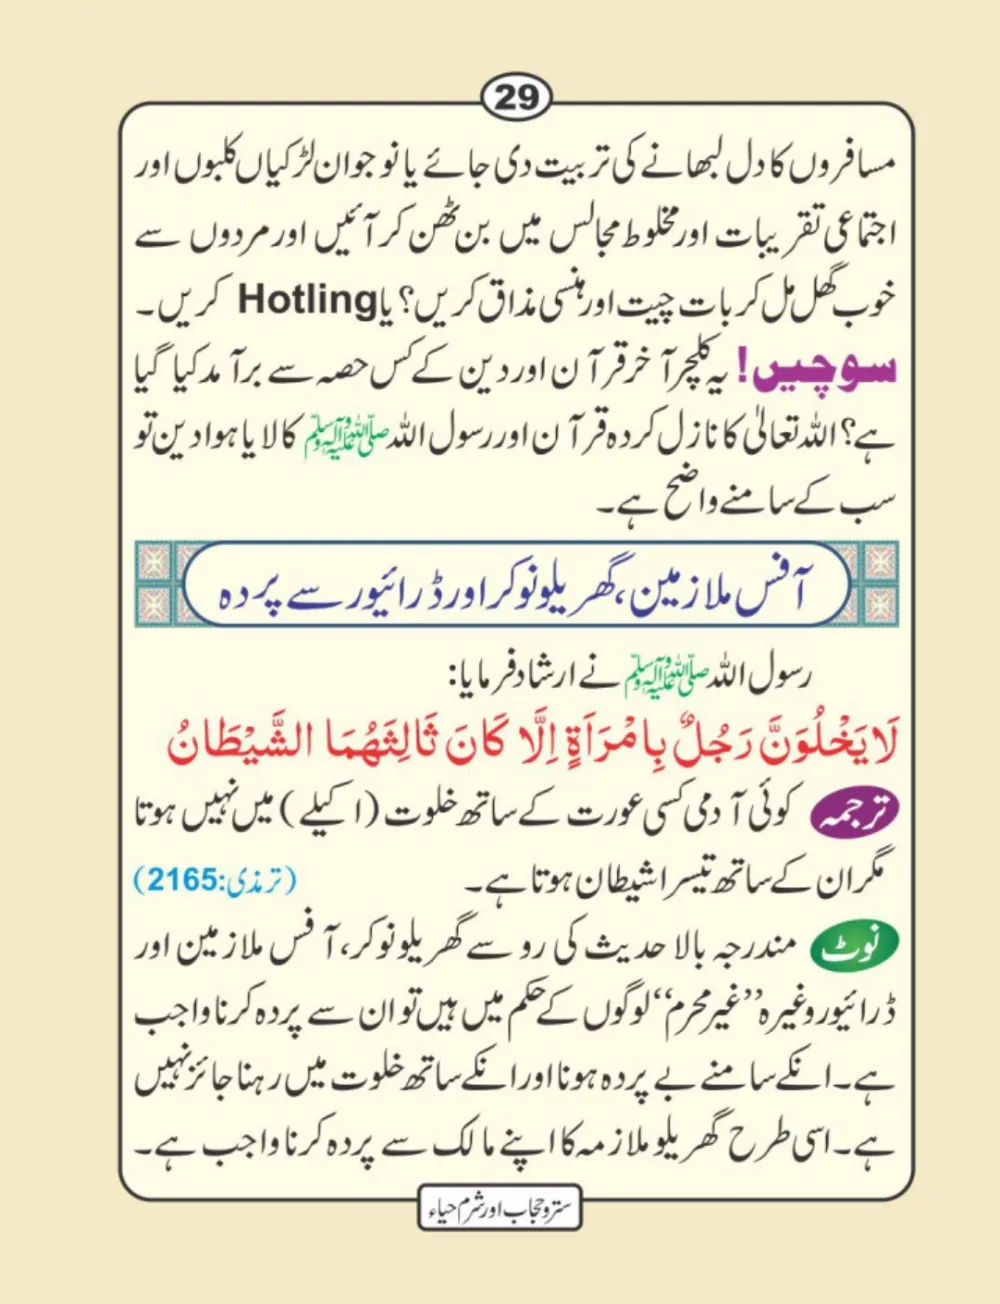 29
مسافروں کا دل لبھانے کی تربیت دی جائے یا نوجوان لڑکیاں کلبوں اور
اجتماعی تقریبات اور مخلوط مجالس میں بن ٹھن کر آئیں اور مردوں سے
خوب گھل مل کر بات چیت اور ہنسی مذاق کریں؟ یا Hotling کریں۔
سوچیں! یہ کلچر آخر قرآن اور دین کے کس حصہ سے برآمد کیا گیا
ہے؟ اللہ تعالیٰ کا نازل کردہ قرآن اور رسول اللہ ﷺ کا لایا ہوا دین تو
سب کے سامنے واضح ہے۔
آفس ملازمین، گھریلو نوکر اور ڈرائیور سے پردہ
رسول اللہ ﷺ نے ارشاد فرمایا:
لَا يَخْلُوَنَّ رَجُلٌ بِامْرَأَةٍ اِلَّا كَانَ ثَالِثَهُمَا الشَّيْطَانُ
ترجمہ کوئی آدمی کسی عورت کے ساتھ خلوت (اکیلے) میں نہیں ہوتا
مگر ان کے ساتھ تیسرا شیطان ہوتا ہے۔ (ترمذی:2165)
نوٹ مندرجہ بالا حدیث کی رو سے گھریلو نوکر، آفس ملازمین اور
ڈرائیور وغیرہ ’’غیر محرم‘‘ لوگوں کے حکم میں ہیں تو ان سے پردہ کرنا واجب
ہے۔ انکے سامنے بے پردہ ہونا اور انکے ساتھ خلوت میں رہنا جائز نہیں
ہے۔ اسی طرح گھریلو ملازمہ کا اپنے مالک سے پردہ کرنا واجب ہے۔
ستر و حجاب اور شرم حیاء